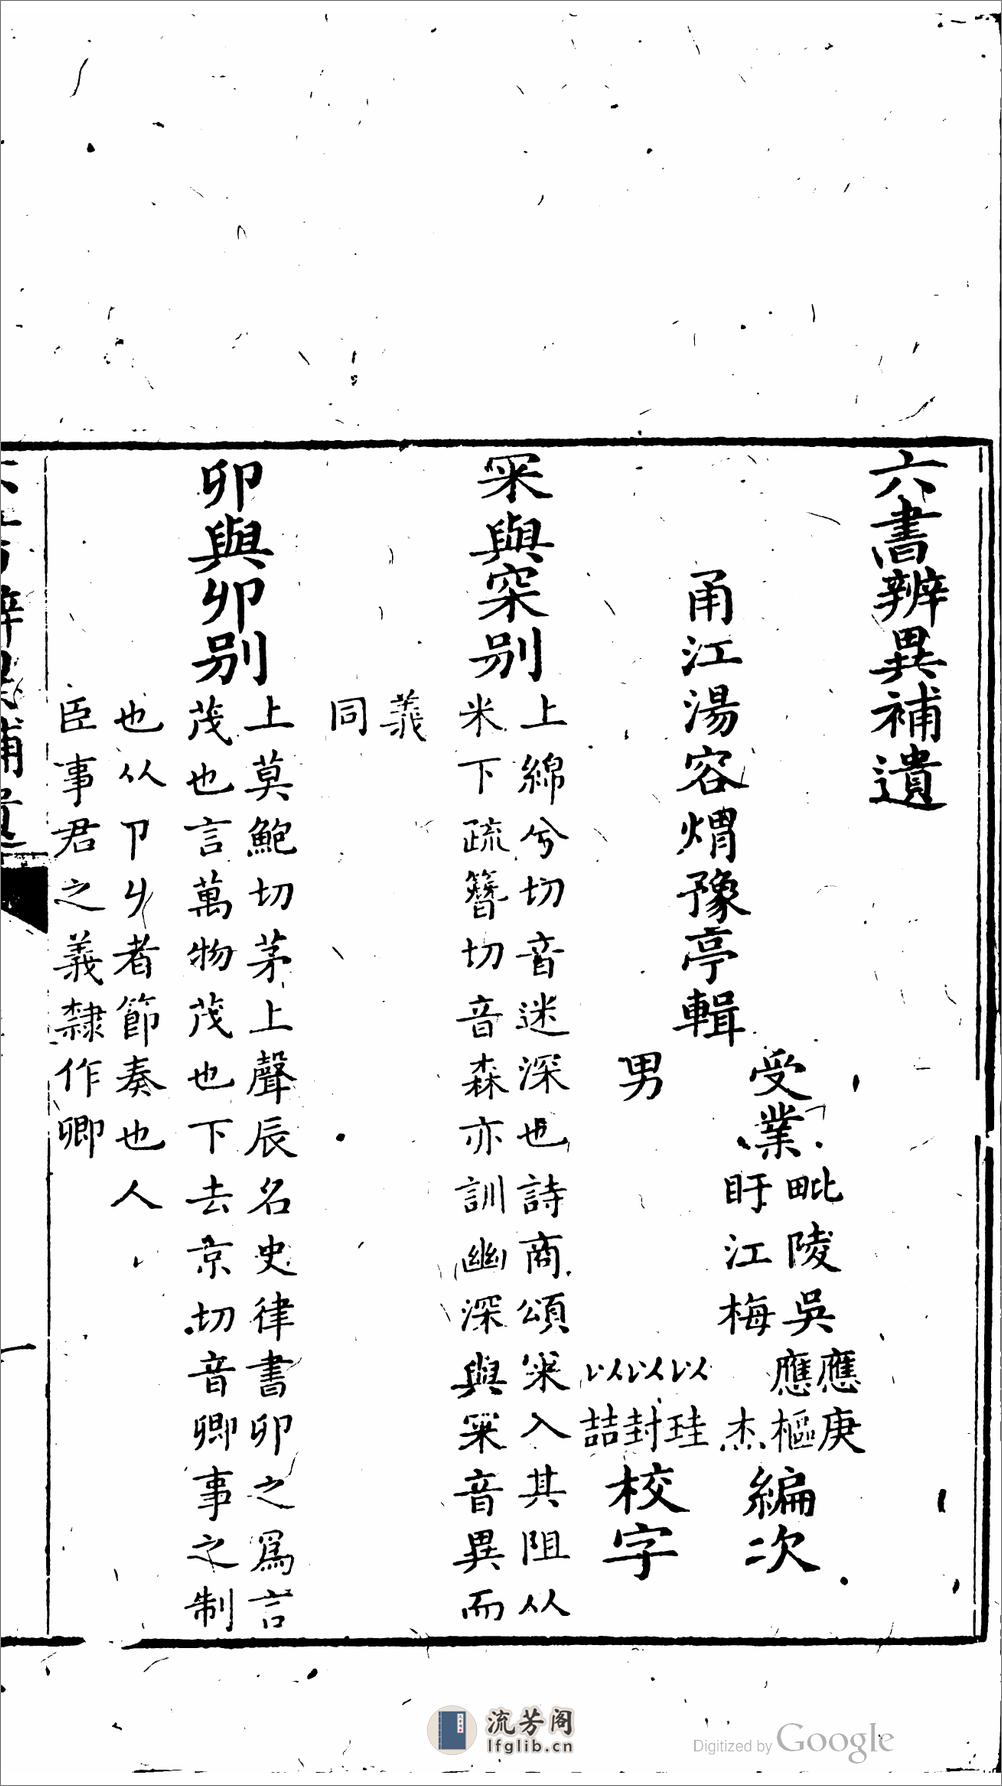 六書辨異補遺
甬江湯容熠豫亭輯
受業
毗陵吳應庚
應樞
盱江梅杰
編次
男
以珪
以封
以喆
校字
冞與罙別
上綿兮切音迷深也詩商頌冞入其阻从
米下疏簪切音森亦訓幽深與冞音異而
義
同
卯與卯別
上莫鮑切茅上聲辰名史律書卯之爲言
茂也言萬物茂也下去京切音卿事之制
也从卩者節奏也人
臣事君之義隸作卿
一
流芳阁
lfglib.cn
Digitized by Google